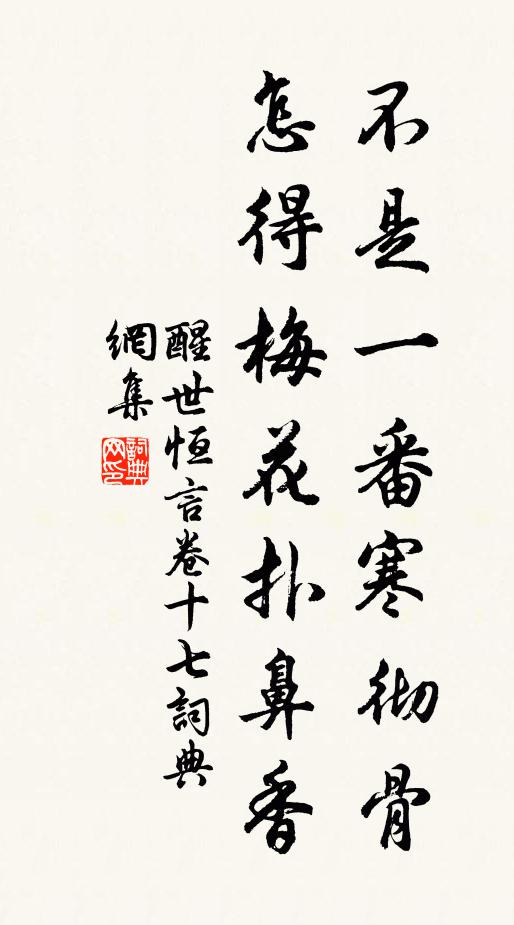 不是一番寒彻骨
怎得梅花扑鼻香
醒世恒言卷十七詞典
網集
詞典网印